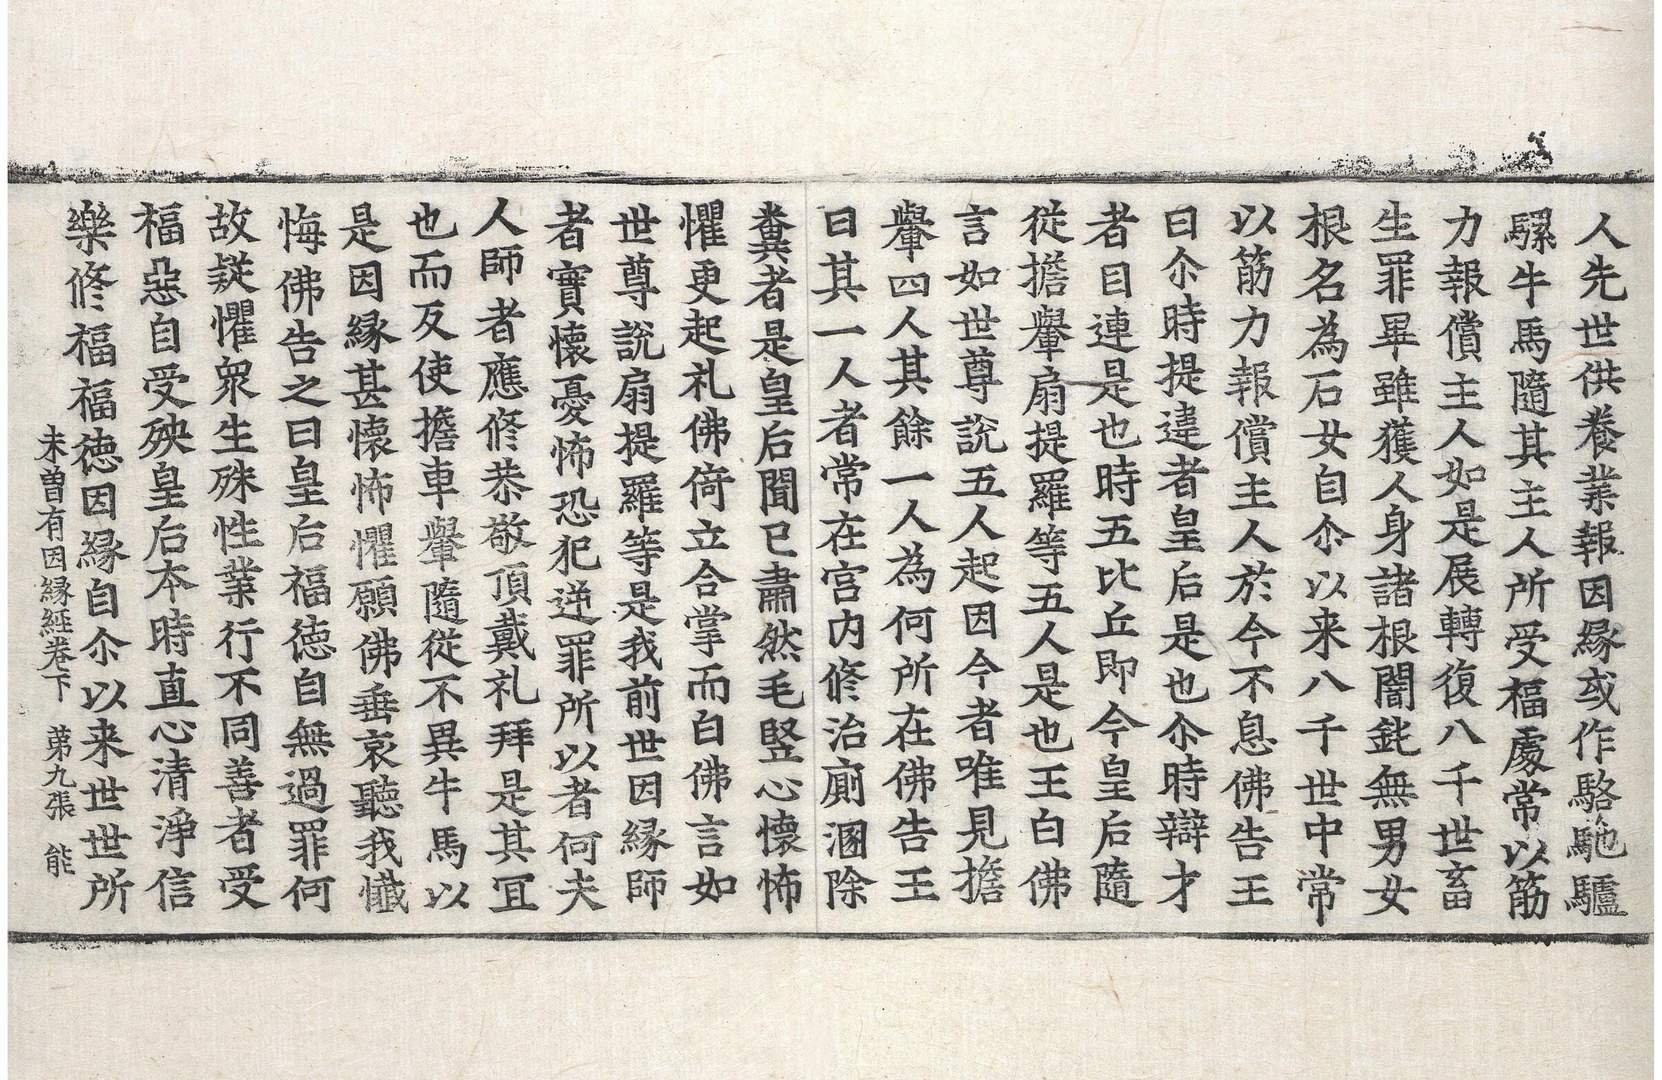 人先世供養業報因縁或作駱馳驢
騾牛馬隨其主人所受福處常以筋
力報償主人如是展轉復八千世畜
生罪畢雖獲人身諸根闇鈍無男女
根名為石女自尒以来八千世中常
以筋力報償主人於今不息佛告王
曰尒時提違者皇后是也尒時辯才
者目連是也時五比丘即今皇后隨
從擔轝扇提羅等五人是也王白佛
言如世尊說五人起因今者唯見擔
轝四人其餘一人為何所在佛告王
曰其一人者常在宮内修治廁溷除
糞者是皇后聞已肅然毛竪心懷怖
懼更起礼佛倚立合掌而白佛言如
世尊說扇提羅等是我前世因縁師
者實懷憂怖恐犯逆罪所以者何夫
人師者應修恭敬頂戴礼拜是其冝
也而反使擔車轝隨從不異牛馬以
是因縁甚懷怖懼願佛垂哀聽我懺
悔佛告之曰皇后福徳自無過罪何
故疑懼衆生殊性業行不同善者受
福惡自受殃皇后本時直心清淨信
樂修福福徳因縁自尒以来世世所
未曽有因縁經卷下　第九張　能